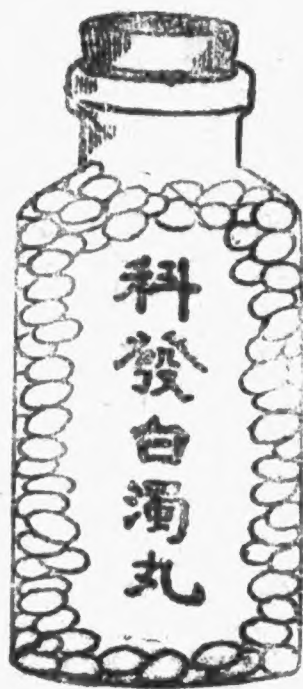 科發白濁丸